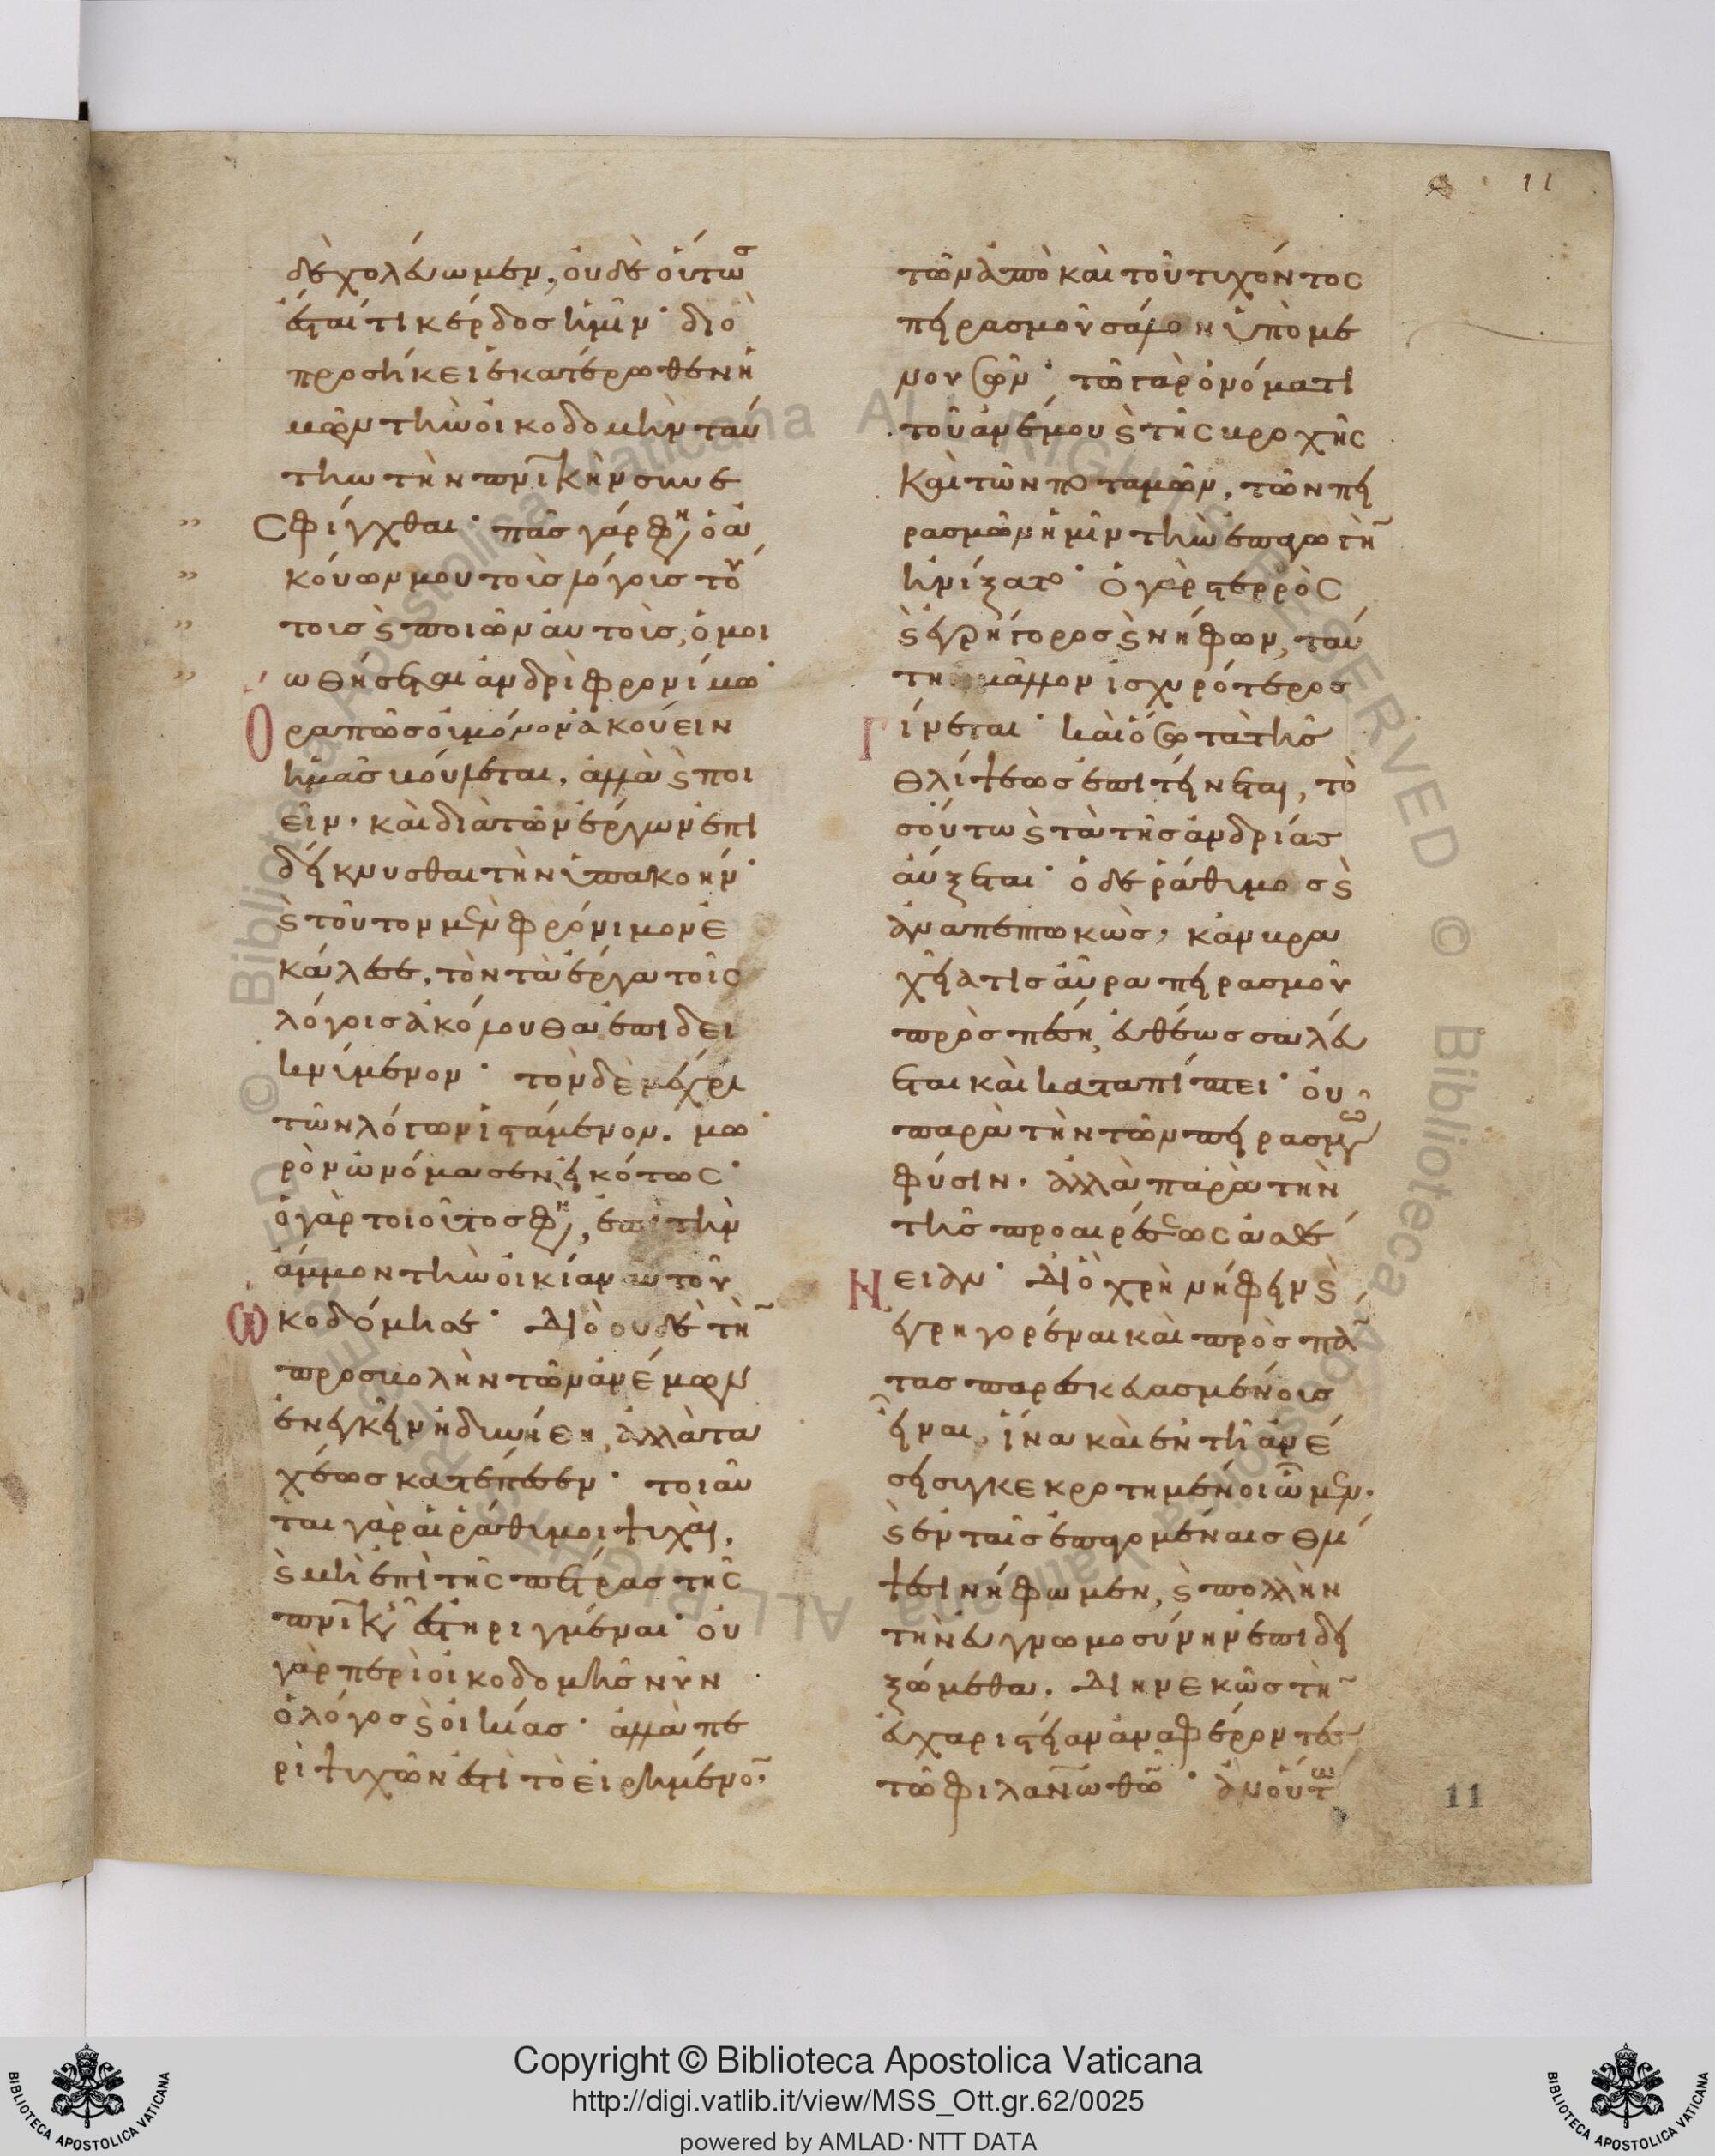 11
δὲ χολεύωμεν, οὐδὲ οὕτως
ἔσται τι κέρδος ἡμῖν· διὸ
προσήκει ἑκατέρωθεν ἡ
μῶν τὴν οἰκοδομὴν ταύ
την τὴν πνικὴν συνε
σφίγχθαι· πᾶς γάρ φη, ὁ ἀ
κούων μου τοὺς λόγους τού
τους καὶ ποιῶν αὐτοὺς, ὁμοι
ωθήσεται ἀνδρὶ φρονίμω·
Ορα πῶς οὐ μόνον ἀκούειν
ἡμᾶς βούλεται, ἀλλὰ καὶ ποι
εῖν· καὶ διὰ τῶν ἔργων ἐπι
δείκνυσθαι τὴν ὑπακοήν·
καὶ τοῦτον μὲν φρόνιμον ἐ
κάλεσε, τὸν τὰ ἔργα τοῖς
λόγοις ἀκόλουθα ἐπιδει
κνύμενον· τὸν δὲ μέχρι
τῶν λόγων ἱστάμενον, μω
ρὸν ὠνόμασεν εἰκότως·
ὁ γὰρ τοιοῦτος φη, ἐπὶ τὴν
ἄμμον τὴν οἰκίαν αὐτοῦ
ωκοδόμησε· Διὸ οὐδὲ τὴν
προσβολὴν τῶν ἀνέμων
ἐνεγκεῖν ἠδυνήθη, ἀλλὰ τα
χέως κατέπεσεν· τοιαῦ
ται γὰρ αἱ ῥάθυμοι ψυχαὶ,
καὶ μὴ ἐπὶ τῆς πέτρας τῆς
πνικῆς ἐστηριγμέναι· οὐ
γὰρ περὶ οἰκοδομῆς νῦν
ὁ λόγος καὶ οἰκίας· ἀλλὰ πε
ρὶ ψυχῶν ἐστὶ τὸ εἰρημένον,
τῶν ἀπὸ καὶ τοῦ τυχόντος
πειρασμοῦ σάλον ὑπομε
νουσῶν· τῶ γὰρ ὀνόματι
τοῦ ἀνέμου καὶ τῆς βροχῆς
καὶ τῶν ποταμῶν, τῶν πει
ρασμῶν ἡμῖν τὴν ἐπαγωγὴν
ἠνίξατο· Ὁ γὰρ στερρὸς
καὶ ἐγρήγορος καὶ νήφων, ταύ
τη μᾶλλον ἰσχυρότερος
Γίνεται· καὶ ὅσω τὰ τῆς
θλίψεως ἐπιτείνεται, το
σούτω καὶ τὰ τῆς ἀνδρίας
αὔξεται· ὁ δὲ ῥάθυμος καὶ
ἀναπεπτωκὼς, κἂν βρα
χεῖά τις αὔρα πειρασμοῦ
προσπέση, εὐθέως σαλεύ
εται καὶ καταπίπτει· οὐ
παρὰ τὴν τῶν πειρασμῶν
φύσιν· ἀλλὰ παρὰ τὴν
τῆς προαιρέσεως ἀσθέ
Νειαν· Διὸ χρὴ νήφειν καὶ
ἐγρηγορέναι καὶ πρὸς πάν
τας παρεσκευασμένοις
εἶναι, ἵνα καὶ ἐν τῆ ἀνέ
σει συγκεκροτημένοι ὦμεν·
καὶ ἐν ταῖς ἐπαγομέναις θλί
ψεσι νήφωμεν, καὶ πολλὴν
τὴν εὐγνωμοσύνην ἐπιδει
ξώμεθα· Διηνεκῶς τὴν
εὐχαριστείαν ἀναφέροντες
τῶ φιλανωθῶ· ἂν οὕτω
11
Copyright © Biblioteca Apostolica Vaticana
http://digi.vatlib.it/view/MSS_Ott.gr.62/0025
powered by AMLAD·NTT DATA
BIBLIOTECA APOSTOLICA VATICANA
BIBLIOTECA APOSTOLICA VATICANA